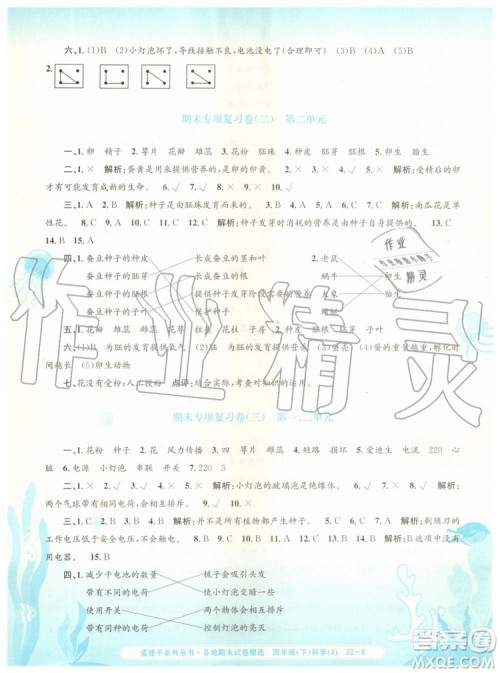 六、1. (1)B (2)小灯泡坏了,导线接触不良,电池没电了(合理即可) (3)A (4)A (5)B
2.
期末专项复习卷(二) 第二单元
一、1. 卵 精子 2. 萼片 花瓣 雄蕊 雌蕊 3. 花粉 胚珠 4. 种皮 胚芽 胚根 5. 卵生 胎生
二、1. × 解析:蛋黄是用来提供营养的,是卵的卵黄。 2. √ 3. × 4. × 5. × 解析:受精的卵
才有可能发育成新的生命。 6. √ 7. × 8. × 9. √ 10. √
三、1. B 2. A 3. A 4. B 解析:种子是由胚珠发育而成的。 5. A 6. B 7. A 解析:南瓜花是单
性花。 8. C 9. C 10. C 11. C 解析:种子发芽时需要的营养是由种子自身提供的。 12. C 13. C
14. B 15. A
四、1. 蚕豆种子的种皮 长成蚕豆的茎和叶 2. 老鼠
蚕豆种子的胚芽 长成蚕豆的根 蜗牛 卵生
蚕豆种子的胚根 提供种子发芽阶段的营养 胎生
保护种子
五、1. 花瓣 雄蕊 雌蕊 萼片 2. 种皮 胚根 胚芽 子叶
六、(1)为胚的发育提供氧气 (2)卵黄 为胚的发育提供营养 (3)蛋壳 (4)蛋的重量越重,孵化的时
间越长 (5)卵生动物
七、花没有受粉;人工授粉
期末专项复习卷(三) 第一、二单元
一、1. 花粉 种子 2. 花 风力传播 3. 雄蕊 雌蕊 4. 短路 排斥 5. 爱迪生 玻璃泡 灯丝
脏 6. 电源 小灯泡 串联 开关 7. 220 3
二、1. √ 2. × 3. √ 解析:小灯泡的玻璃泡是绝缘体。 4. × 5. ×
两个气球带有相同的电荷,会互相排斥。 8. × 9. × 10. √
三、1. C 2. C 3. B 4. B 5. A 6. C 7. B 8. A
工作电压与安全电压相近,所以不会有触电事故发生。
用电器。 15. B
四、1. 减少干电池的数量 梳子会吸引头发
带有不同的电荷
使用开关
带有相同的电荷
孟建平系列丛书·各地期末试卷精选 四年级(下)科学(J) 22-6
作业精灵